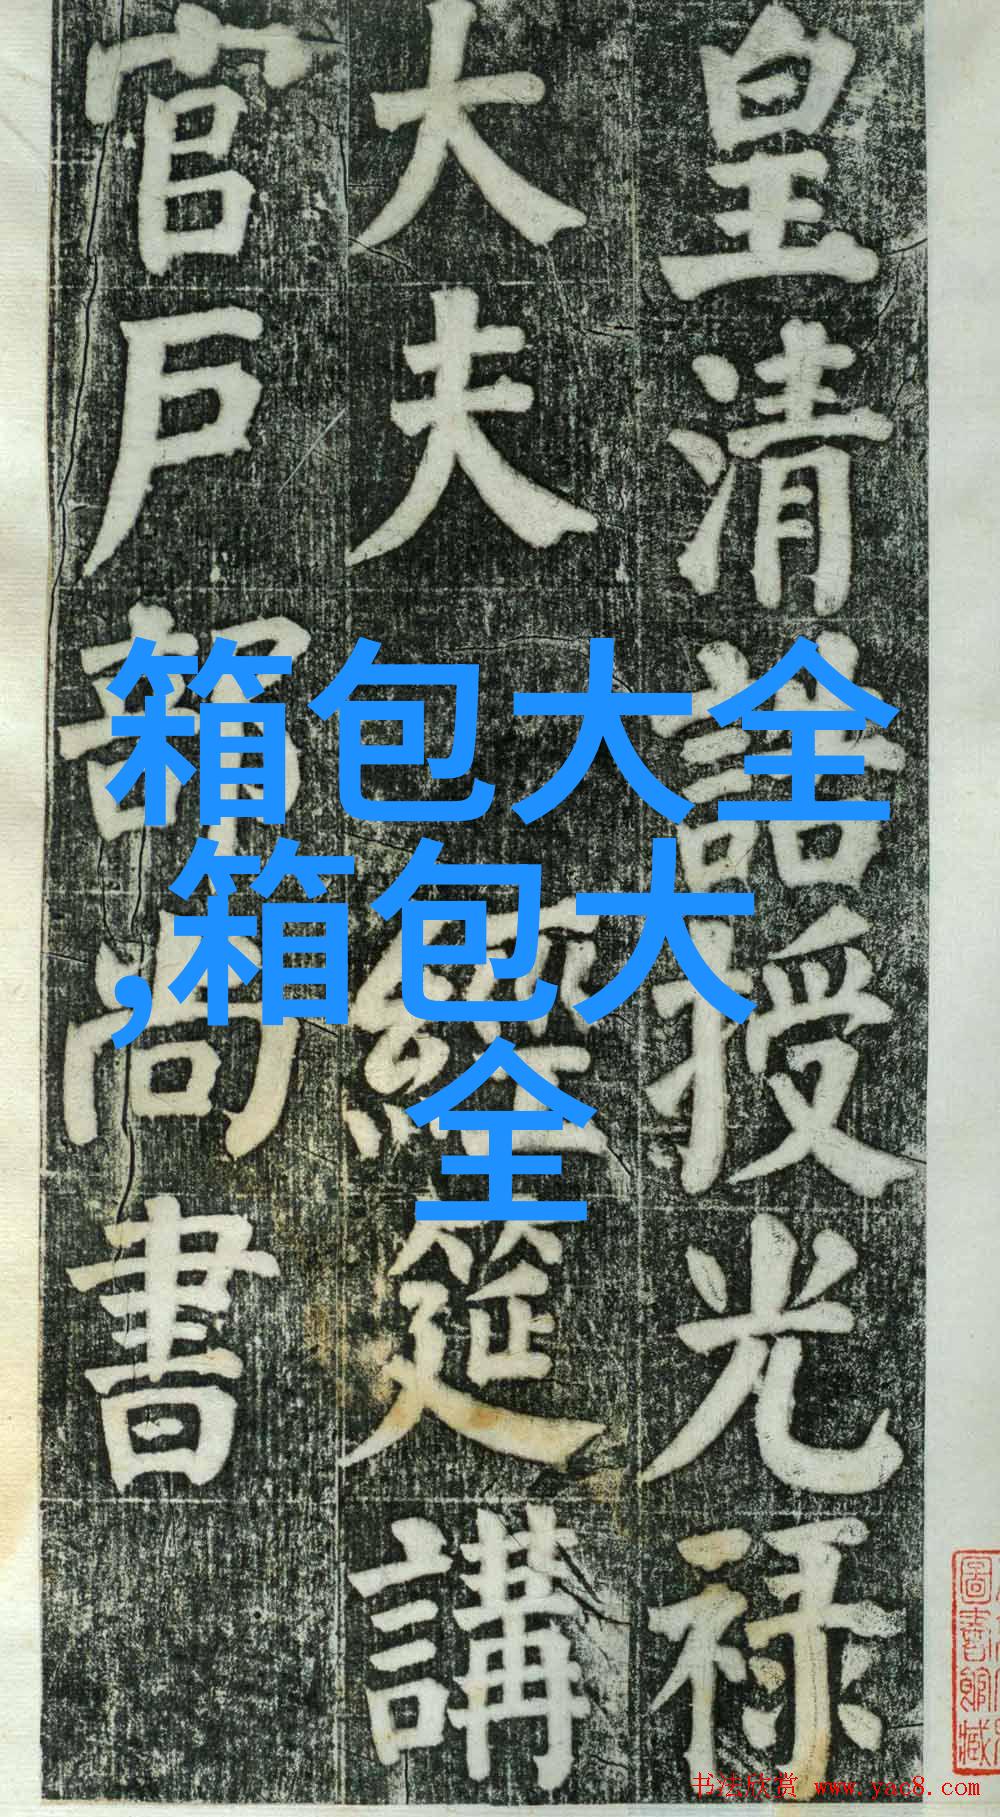 皇清誥授光禄
大夫經筵講
官户部尚書
箱包大全
,箱包大
全
圖書館藏
书法欣赏 www.yac8.com